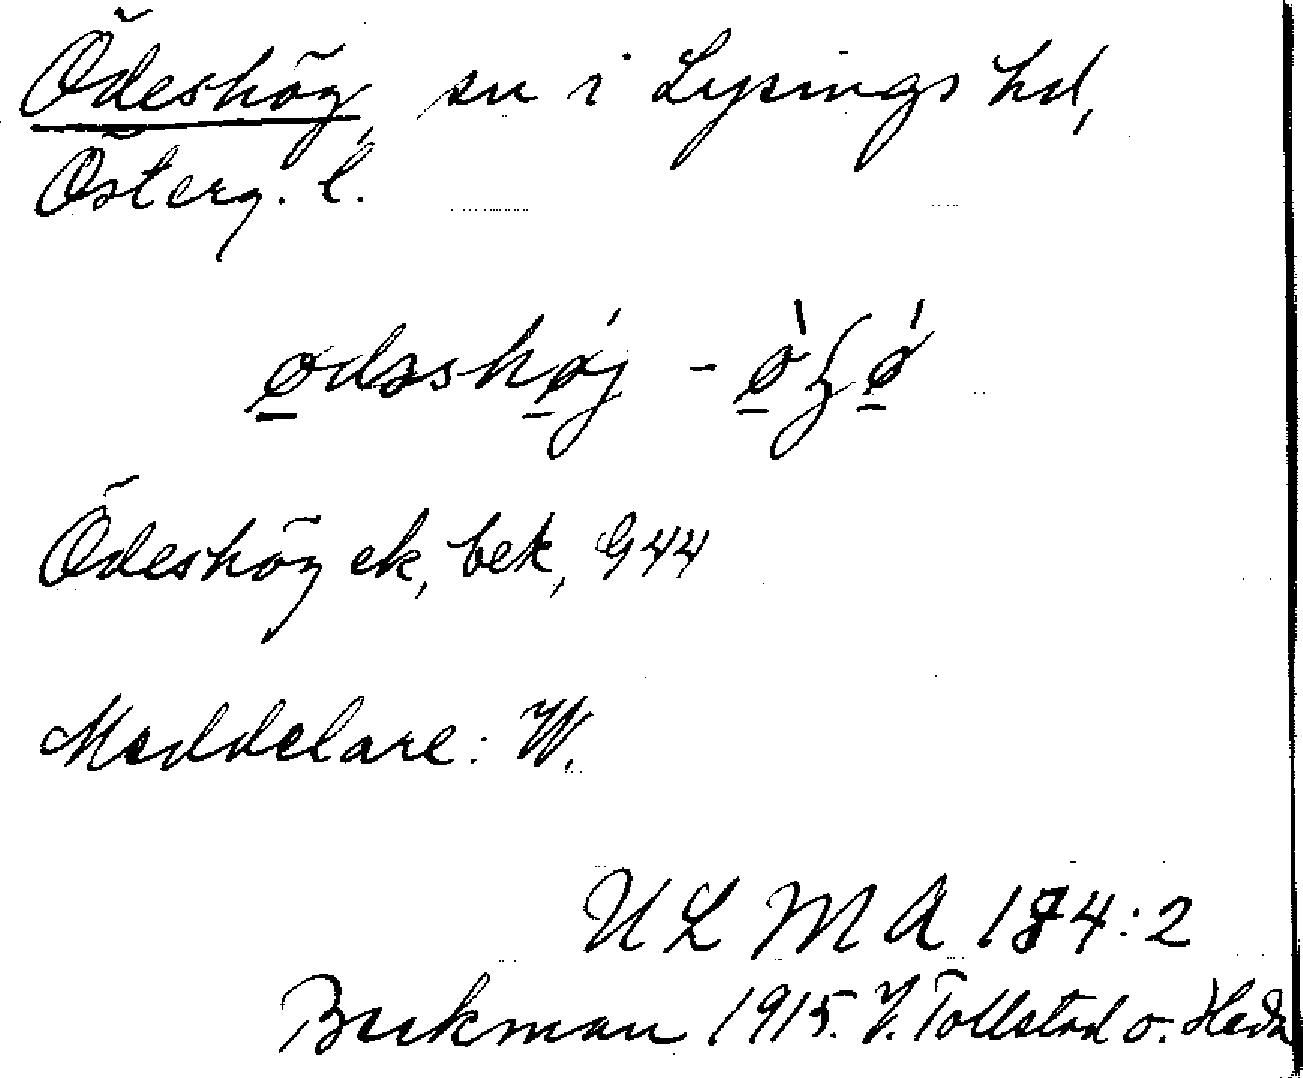 Ödeshög, sn i Lysings hd,
Österg. l.
ødsshǿj - ø̀ʒǿ
Ödeshög ek, bek, G44
Meddelare: W.
ULMA 184:2
Beckman 1915. V. Tollstad o. Heda